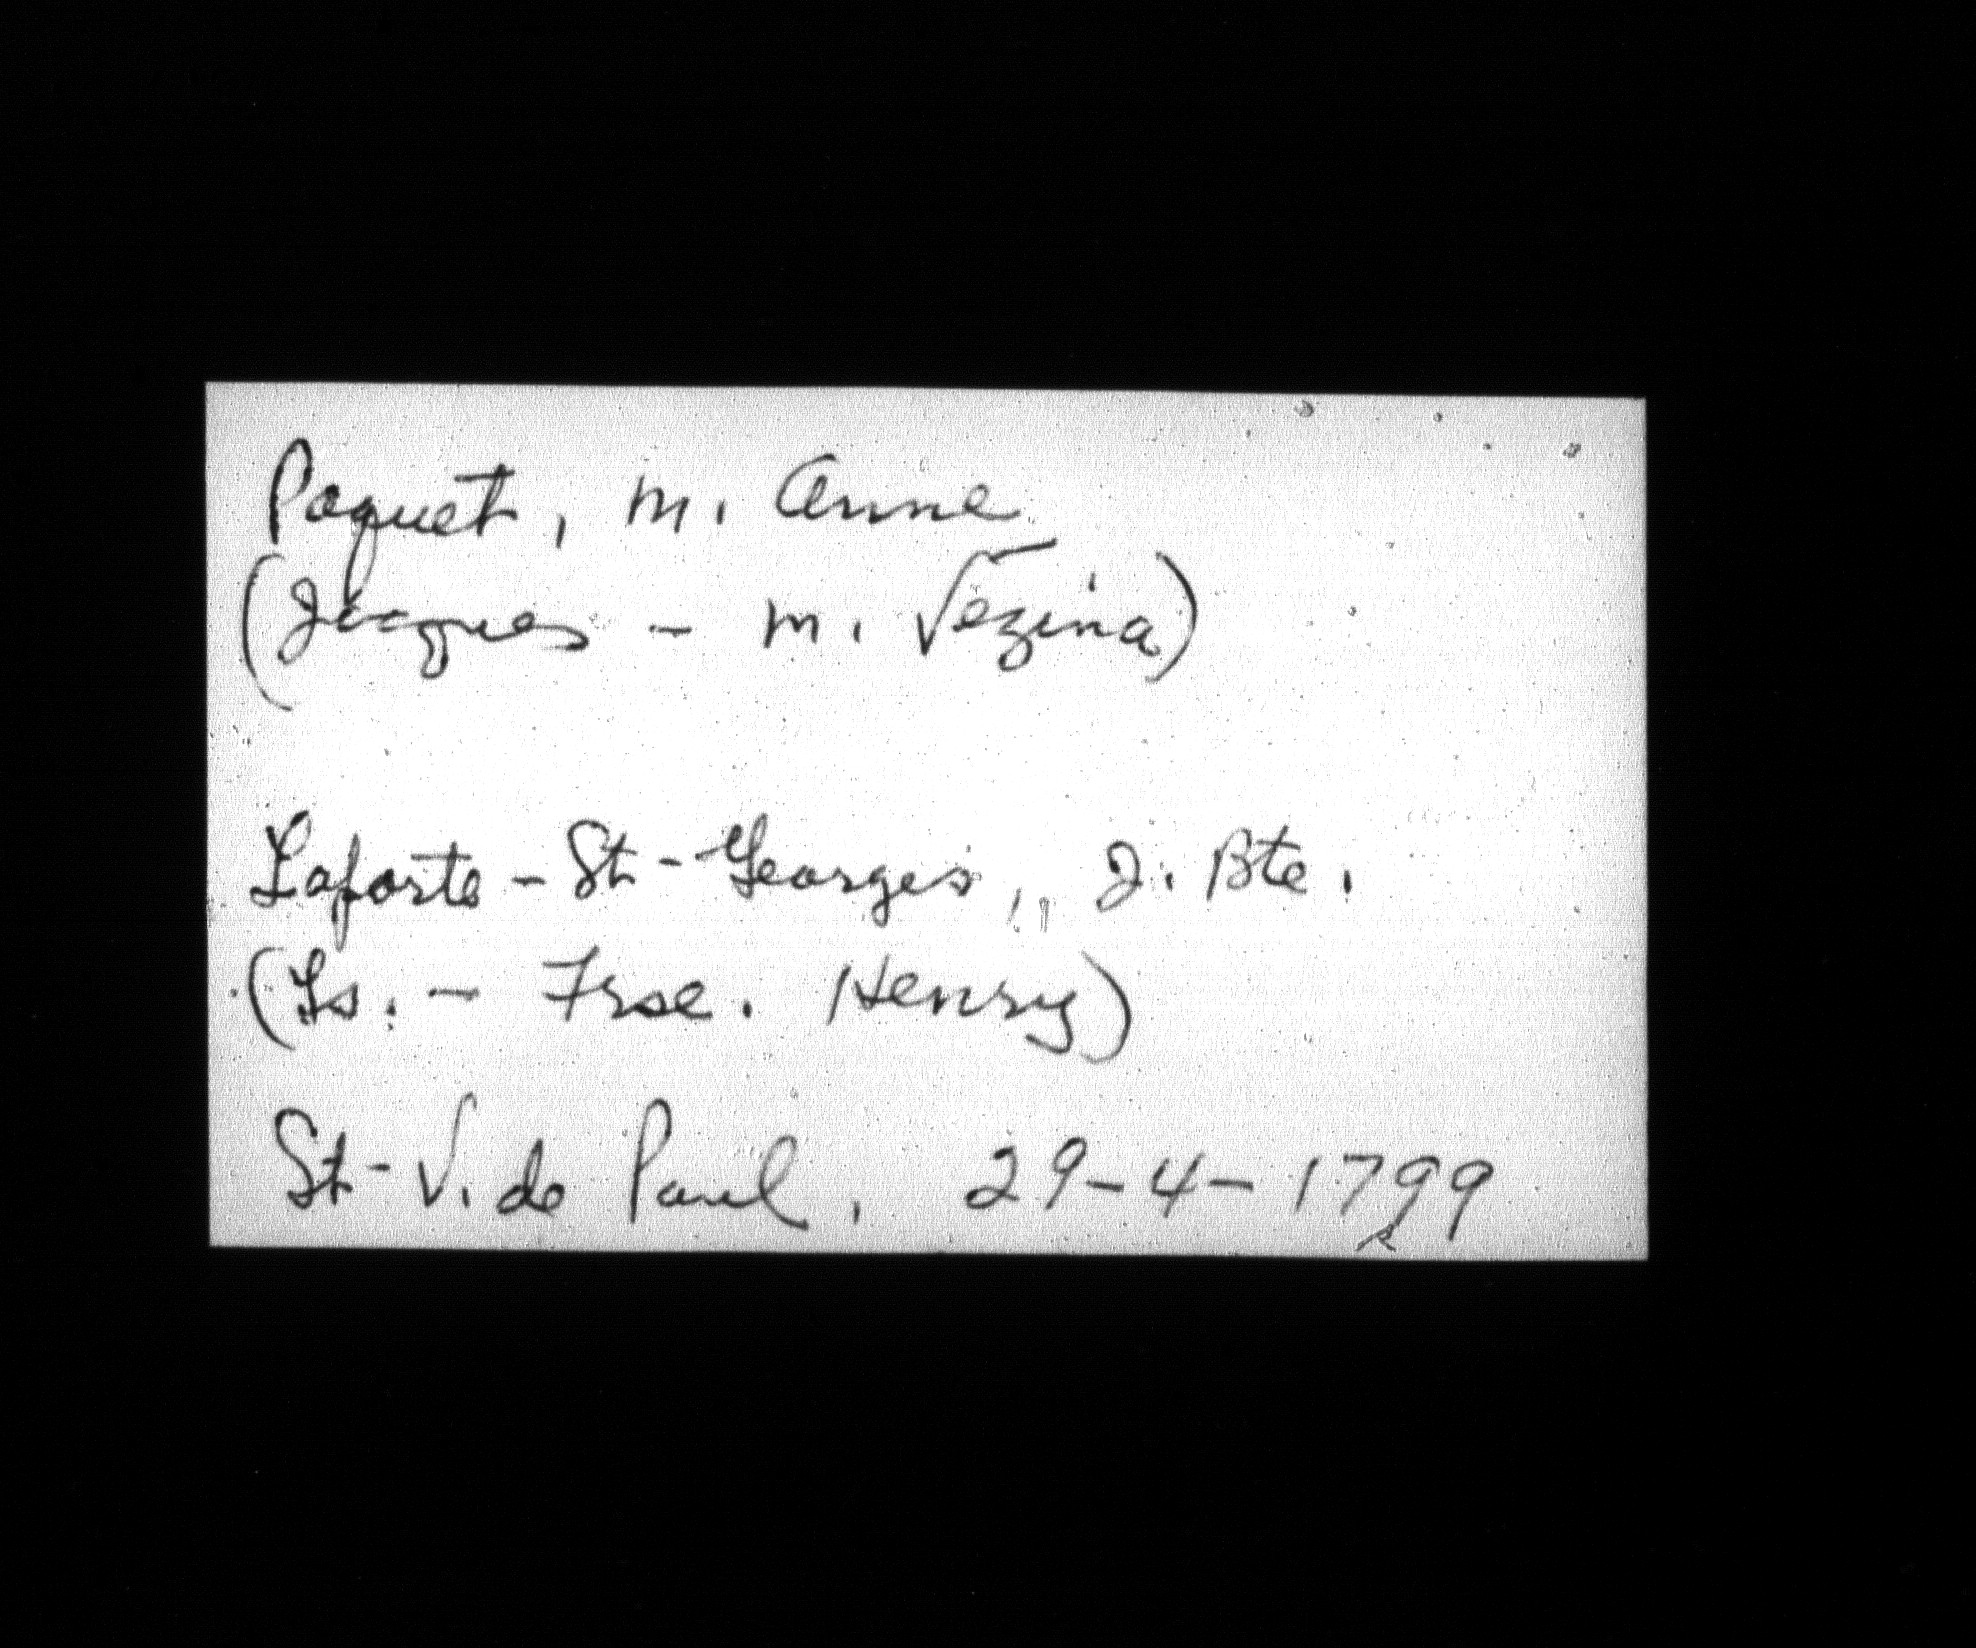 Paquet, m. Anne
(Jacques - m. Vezina)
Laforte - St - Georges, J. Bte.
(Ls. - Frse. Henry)
St - V. de Paul, 29-4-1799